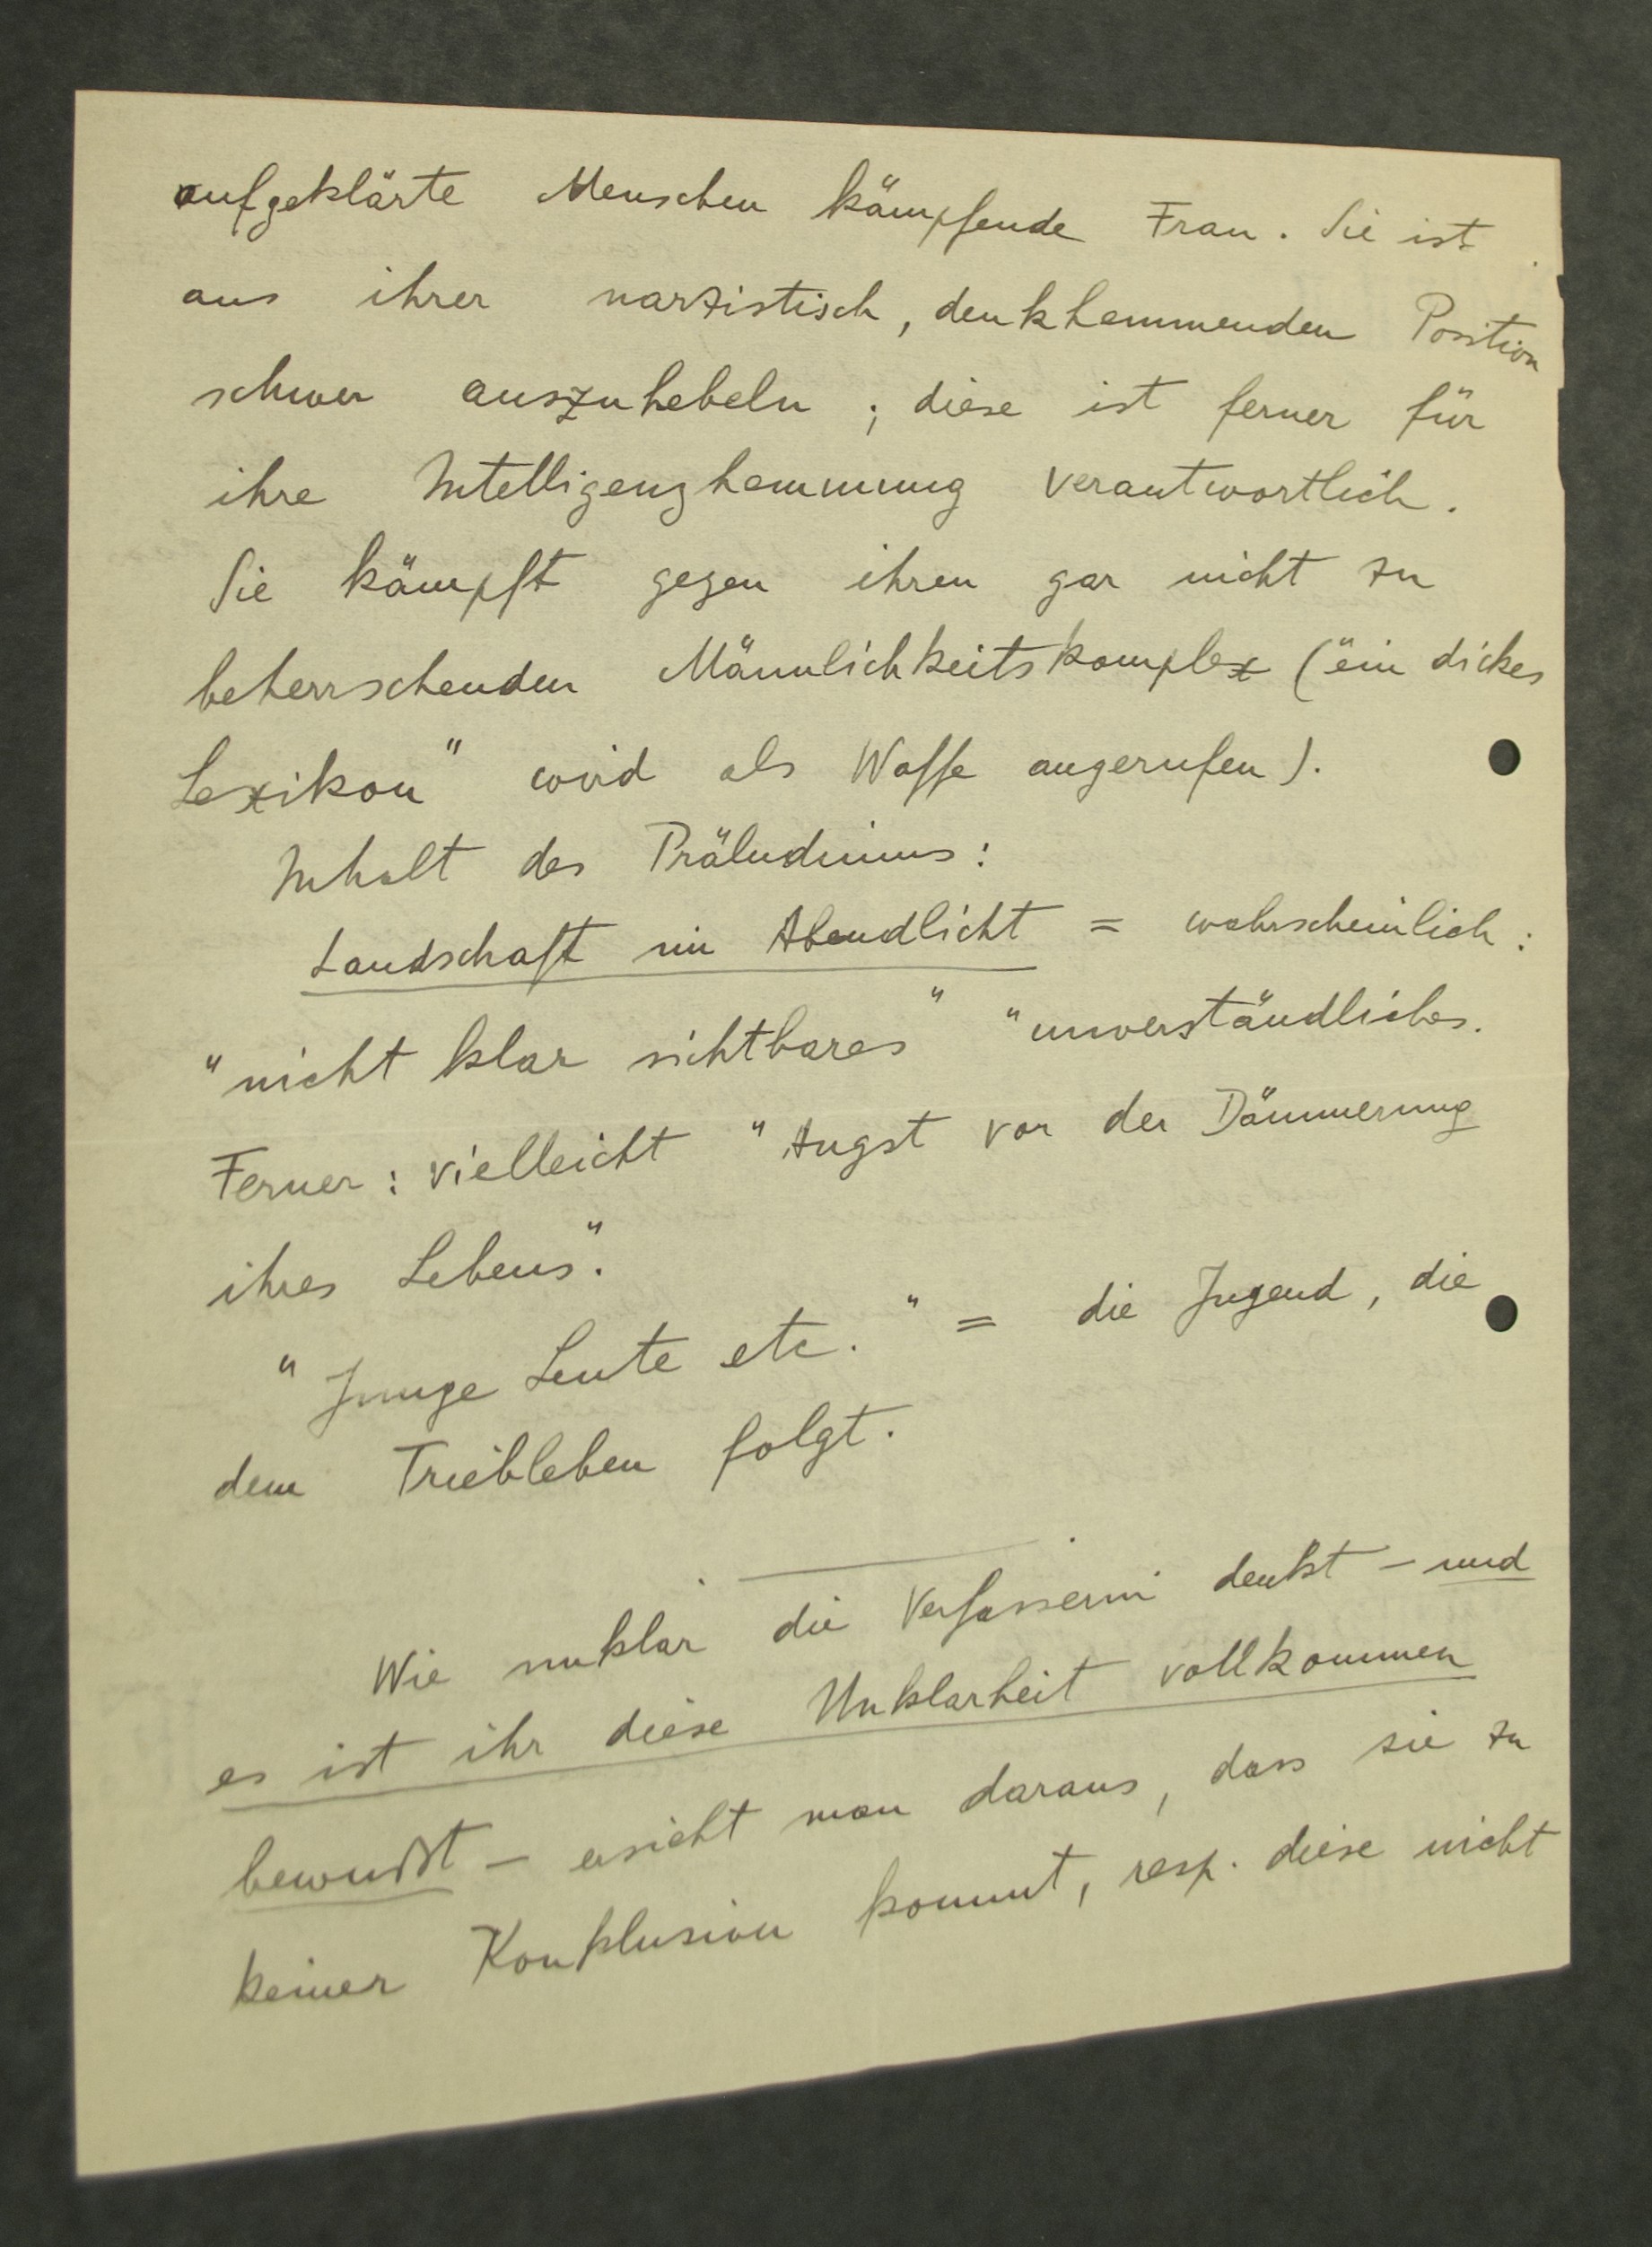 aufgeklärte Menschen kämpfende Frau. Sie ist
aus ihrer narzistisch, denkhemmenden Position
schwer auszuhebeln ; diese ist ferner für
ihre Intelligenzhemmung verantwortlich.
Sie kämpft gegen ihren gar nicht zu
beherrschenden Männlichkeitskomplex ("ein dickes
Lexikon" wird als Waffe angerufen).
Inhalt des Präludiums:
Landschaft im Abendlicht = wahrscheinlich:
"nicht klar sichtbares" "unverständliches.
Ferner: vielleicht "Angst vor der Dämmerung
ihres Lebens".
"Junge Leute etc." = die Jugend, die
dem Triebleben folgt.
Wie unklar die Verfasserin denkt – und
es ist ihr diese Unklarheit vollkommen
bewußt – ersieht man daraus, dass sie zu
keiner Konklusion kommt, resp. diese nicht